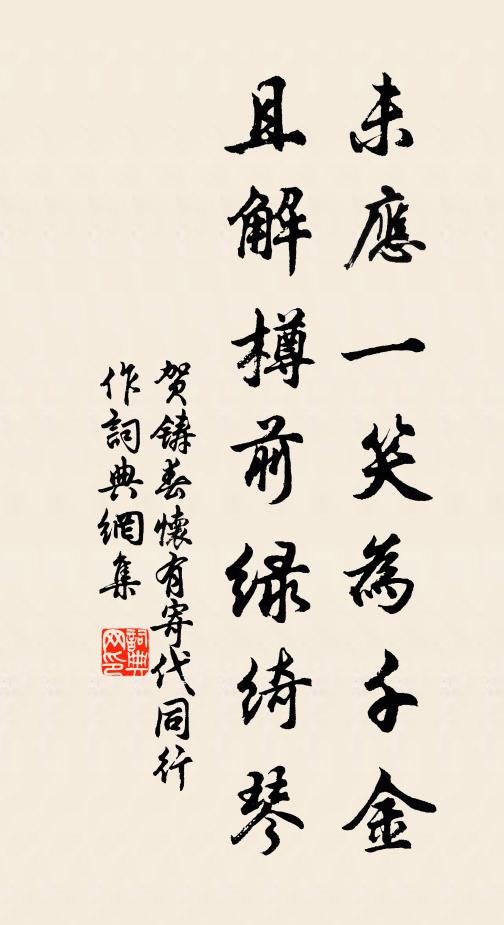 未應一笑為千金
且解樽前緑綺琴
賀鑄春懷有寄代同行
作詞典網集
詞典网印